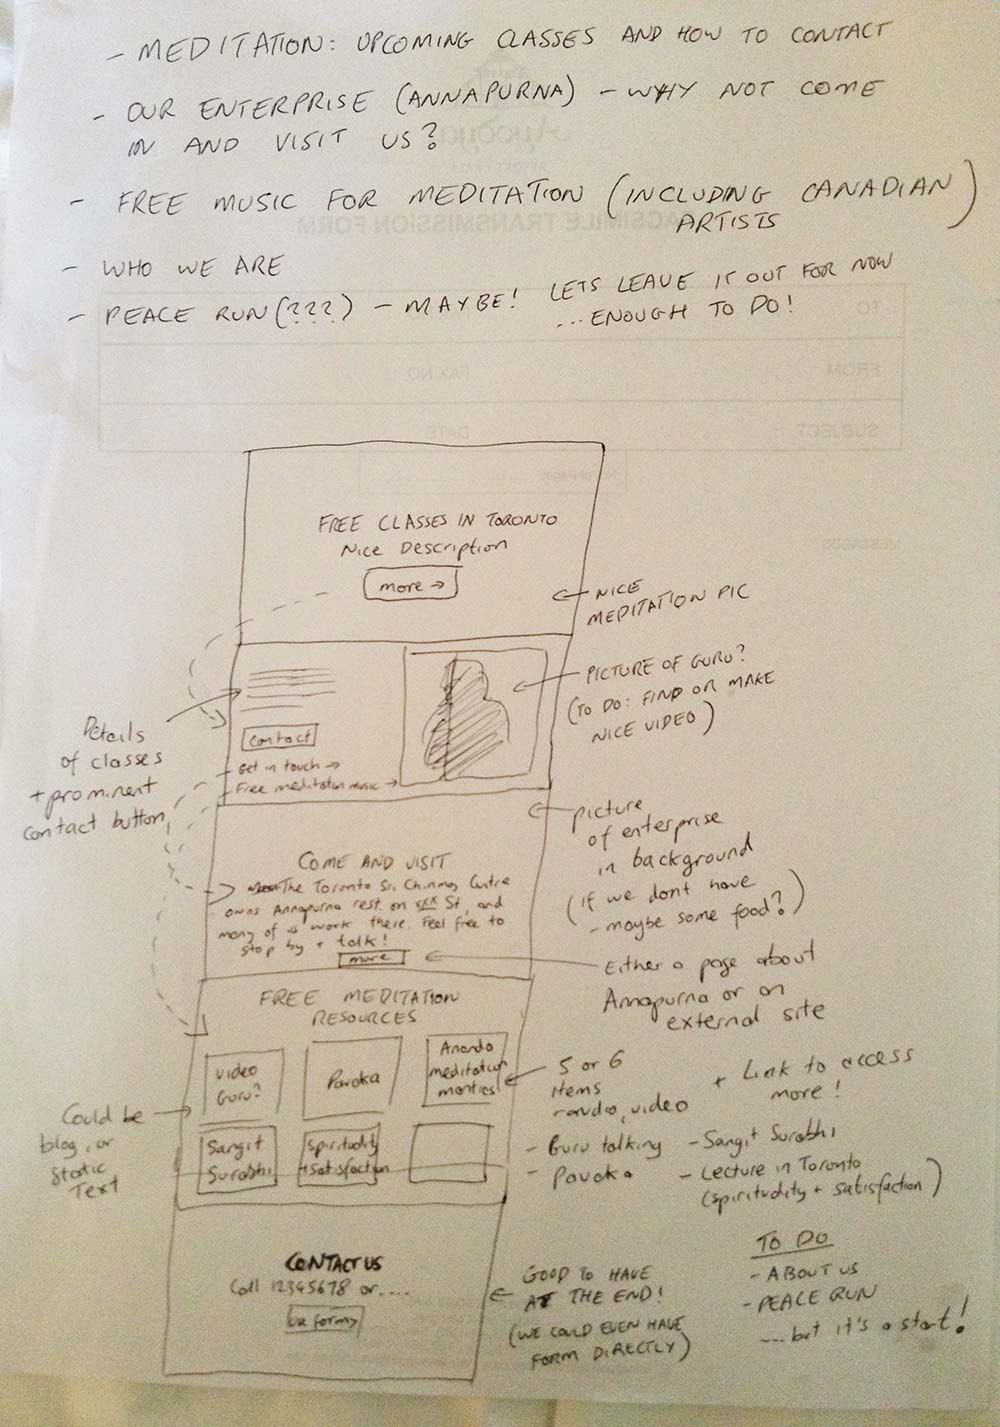 - MEDITATION: UPCOMING CLASSES AND HOW TO CONTACT
- OUR ENTERPRISE (ANNAPURNA) - WHY NOT COME
IN AND VISIT US?
- FREE MUSIC FOR MEDITATION (INCLUDING CANADIAN
ARTISTS)
- WHO WE ARE
- PEACE RUN (???) - MAYBE! LETS LEAVE IT OUT FOR NOW
...ENOUGH TO DO!
FACSIMILE TRANSMISSION FORM
TO
FROM
FAX NO
SUBJECT
DATE
MESSAGES
FREE CLASSES IN TORONTO
Nice Description
more →
← NICE
MEDITATION PIC
← PICTURE OF GURU?
(TO DO: FIND OR MAKE
NICE VIDEO)
Details
of classes
+ prominent
contact button
contact
Get in touch →
Free meditation music →
← picture
of enterprise
in background
(if we dont have
- maybe some food?)
COME AND VISIT
The Toronto Sri Chinmoy Centre
owns Annapurna rest. on xxx St, and
many of us work there. Feel free to
stop by + talk!
more
← Either a page about
Annapurna or an
external site
FREE MEDITATION
RESOURCES
video
Guru?
Pavaka
Ananda
meditation
mantras
Sangit
Surabhi
Spirituality
+ satisfaction
Could be
blog, or
static
Text
5 or 6
items
audio, video
+ Link to access
more!
- Guru talking
- Pavaka
- Sangit Surabhi
- Lecture in Toronto
(spirituality + satisfaction)
CONTACT US
Call 12345678 or....
← GOOD TO HAVE
AT THE END!
(WE COULD EVEN HAVE
FORM DIRECTLY)
TO DO
- ABOUT US
- PEACE RUN
....but it's a start!